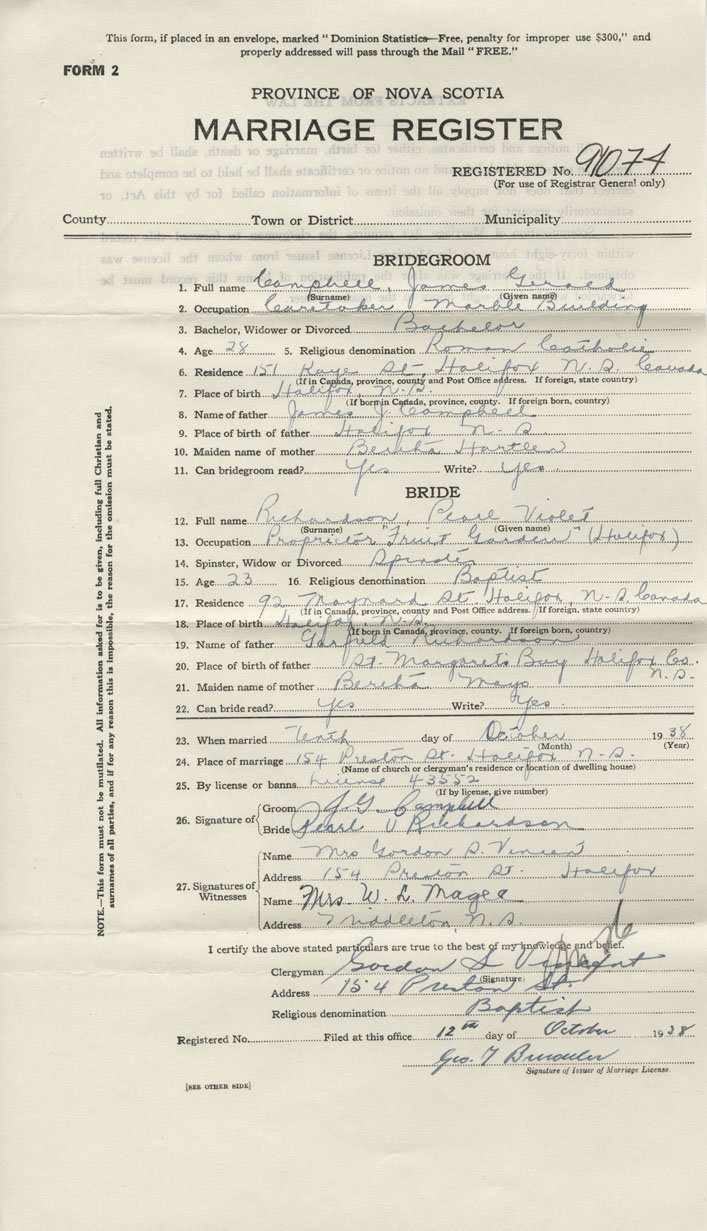 This form, if placed in an envelope, marked "Dominion Statistics—Free, penalty for improper use $300," and
properly addressed will pass through the Mail "FREE."
FORM 2
PROVINCE OF NOVA SCOTIA
MARRIAGE REGISTER
REGISTERED No. 91074
(For use of Registrar General only)
County Town or District Municipality
BRIDEGROOM
1. Full name Campbell, James Gerald
(Surname) (Given name)
2. Occupation Caretaker Marble Building
3. Bachelor, Widower or Divorced Bachelor
4. Age 28 5. Religious denomination Roman Catholic
6. Residence 151 Kaye St, Halifax N.S. Canada
(If in Canada, province, county and Post Office address. If foreign, state country)
7. Place of birth Halifax, N.S.
(If born in Canada, province, county. If foreign born, country)
8. Name of father James J. Campbell
9. Place of birth of father Halifax N-S
10. Maiden name of mother Bertha Hartlen
11. Can bridegroom read? Yes Write? Yes
BRIDE
12. Full name Richardson, Pearl Violet
(Surname) (Given name)
13. Occupation Proprietor "Fruit Garden" (Halifax)
14. Spinster, Widow or Divorced Spinster
15. Age 23 16. Religious denomination Baptist
17. Residence 92 Maynard St. Halifax, N-S. Canada
(If in Canada, province, county and Post Office address. If foreign, state country)
18. Place of birth Halifax, N.S.
(If born in Canada, province, county. If foreign born, country)
19. Name of father Garfield Richardson
20. Place of birth of father St. Margarets Bay Halifax Co.
N.S.
21. Maiden name of mother Bertha Mays
22. Can bride read? Yes Write? Yes.
23. When married Tenth day of October 1938
(Month) (Year)
24. Place of marriage 154 Preston St. Halifax N-S.
(Name of church or clergyman's residence or location of dwelling house)
25. By license or banns License 43552
(If by license, give number)
26. Signature of
Groom J. G. Campbell
Bride Pearl V Richardson
27. Signatures of Witnesses
Name Mrs Gordon S. Vincent
Address 154 Preston St. Halifax
Name Mrs. W. L. Magee
Address Middleton, N.S.
I certify the above stated particulars are true to the best of my knowledge and belief.
Clergyman Gordon S Vincent
(Signature)
Address 154 Preston St.
Religious denomination Baptist
Registered No. Filed at this office 12th day of October 1938
Geo. T
Signature of Issuer of Marriage License.
[SEE OTHER SIDE]
NOTE.—This form must not be mutilated. All information asked for is to be given, including full Christian and
surnames of all parties, and if for any reason this is impossible, the reason for the omission must be stated.